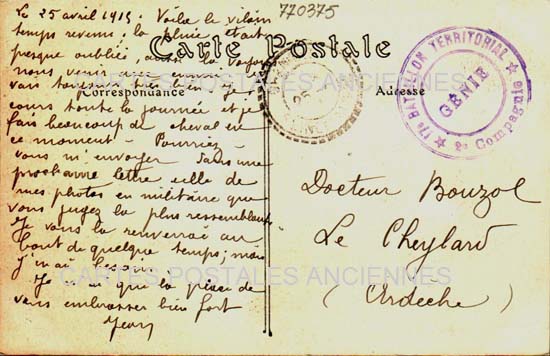 Le 25 avril 1915. Voilà le vilain
temps revenu; la pluie était
presque oubliée, aussi la voyons
nous venir avec ennui. Je
vais toujours bien bien, je
cours toute la journée et je
fais beaucoup de cheval en
ce moment - Pourriez-
vous m'envoyer dans une
prochaine lettre celle de
mes photos en militaire que
vous jugez la plus ressemblante
Je vous la renverrai au
bout de quelque temps; mais
j'en ai
Je n'ai que la place de
vous embrasser bien fort
770375
Carte Postale
Correspondance
Adresse
17e BATAILLON TERRITORIAL
GÉNIE
2e Compagnie
Docteur Bouzol
Le Cheylard
(Ardèche)
CARTES POSTALES ANCIENNES
CARTES POSTALES ANCIENNES